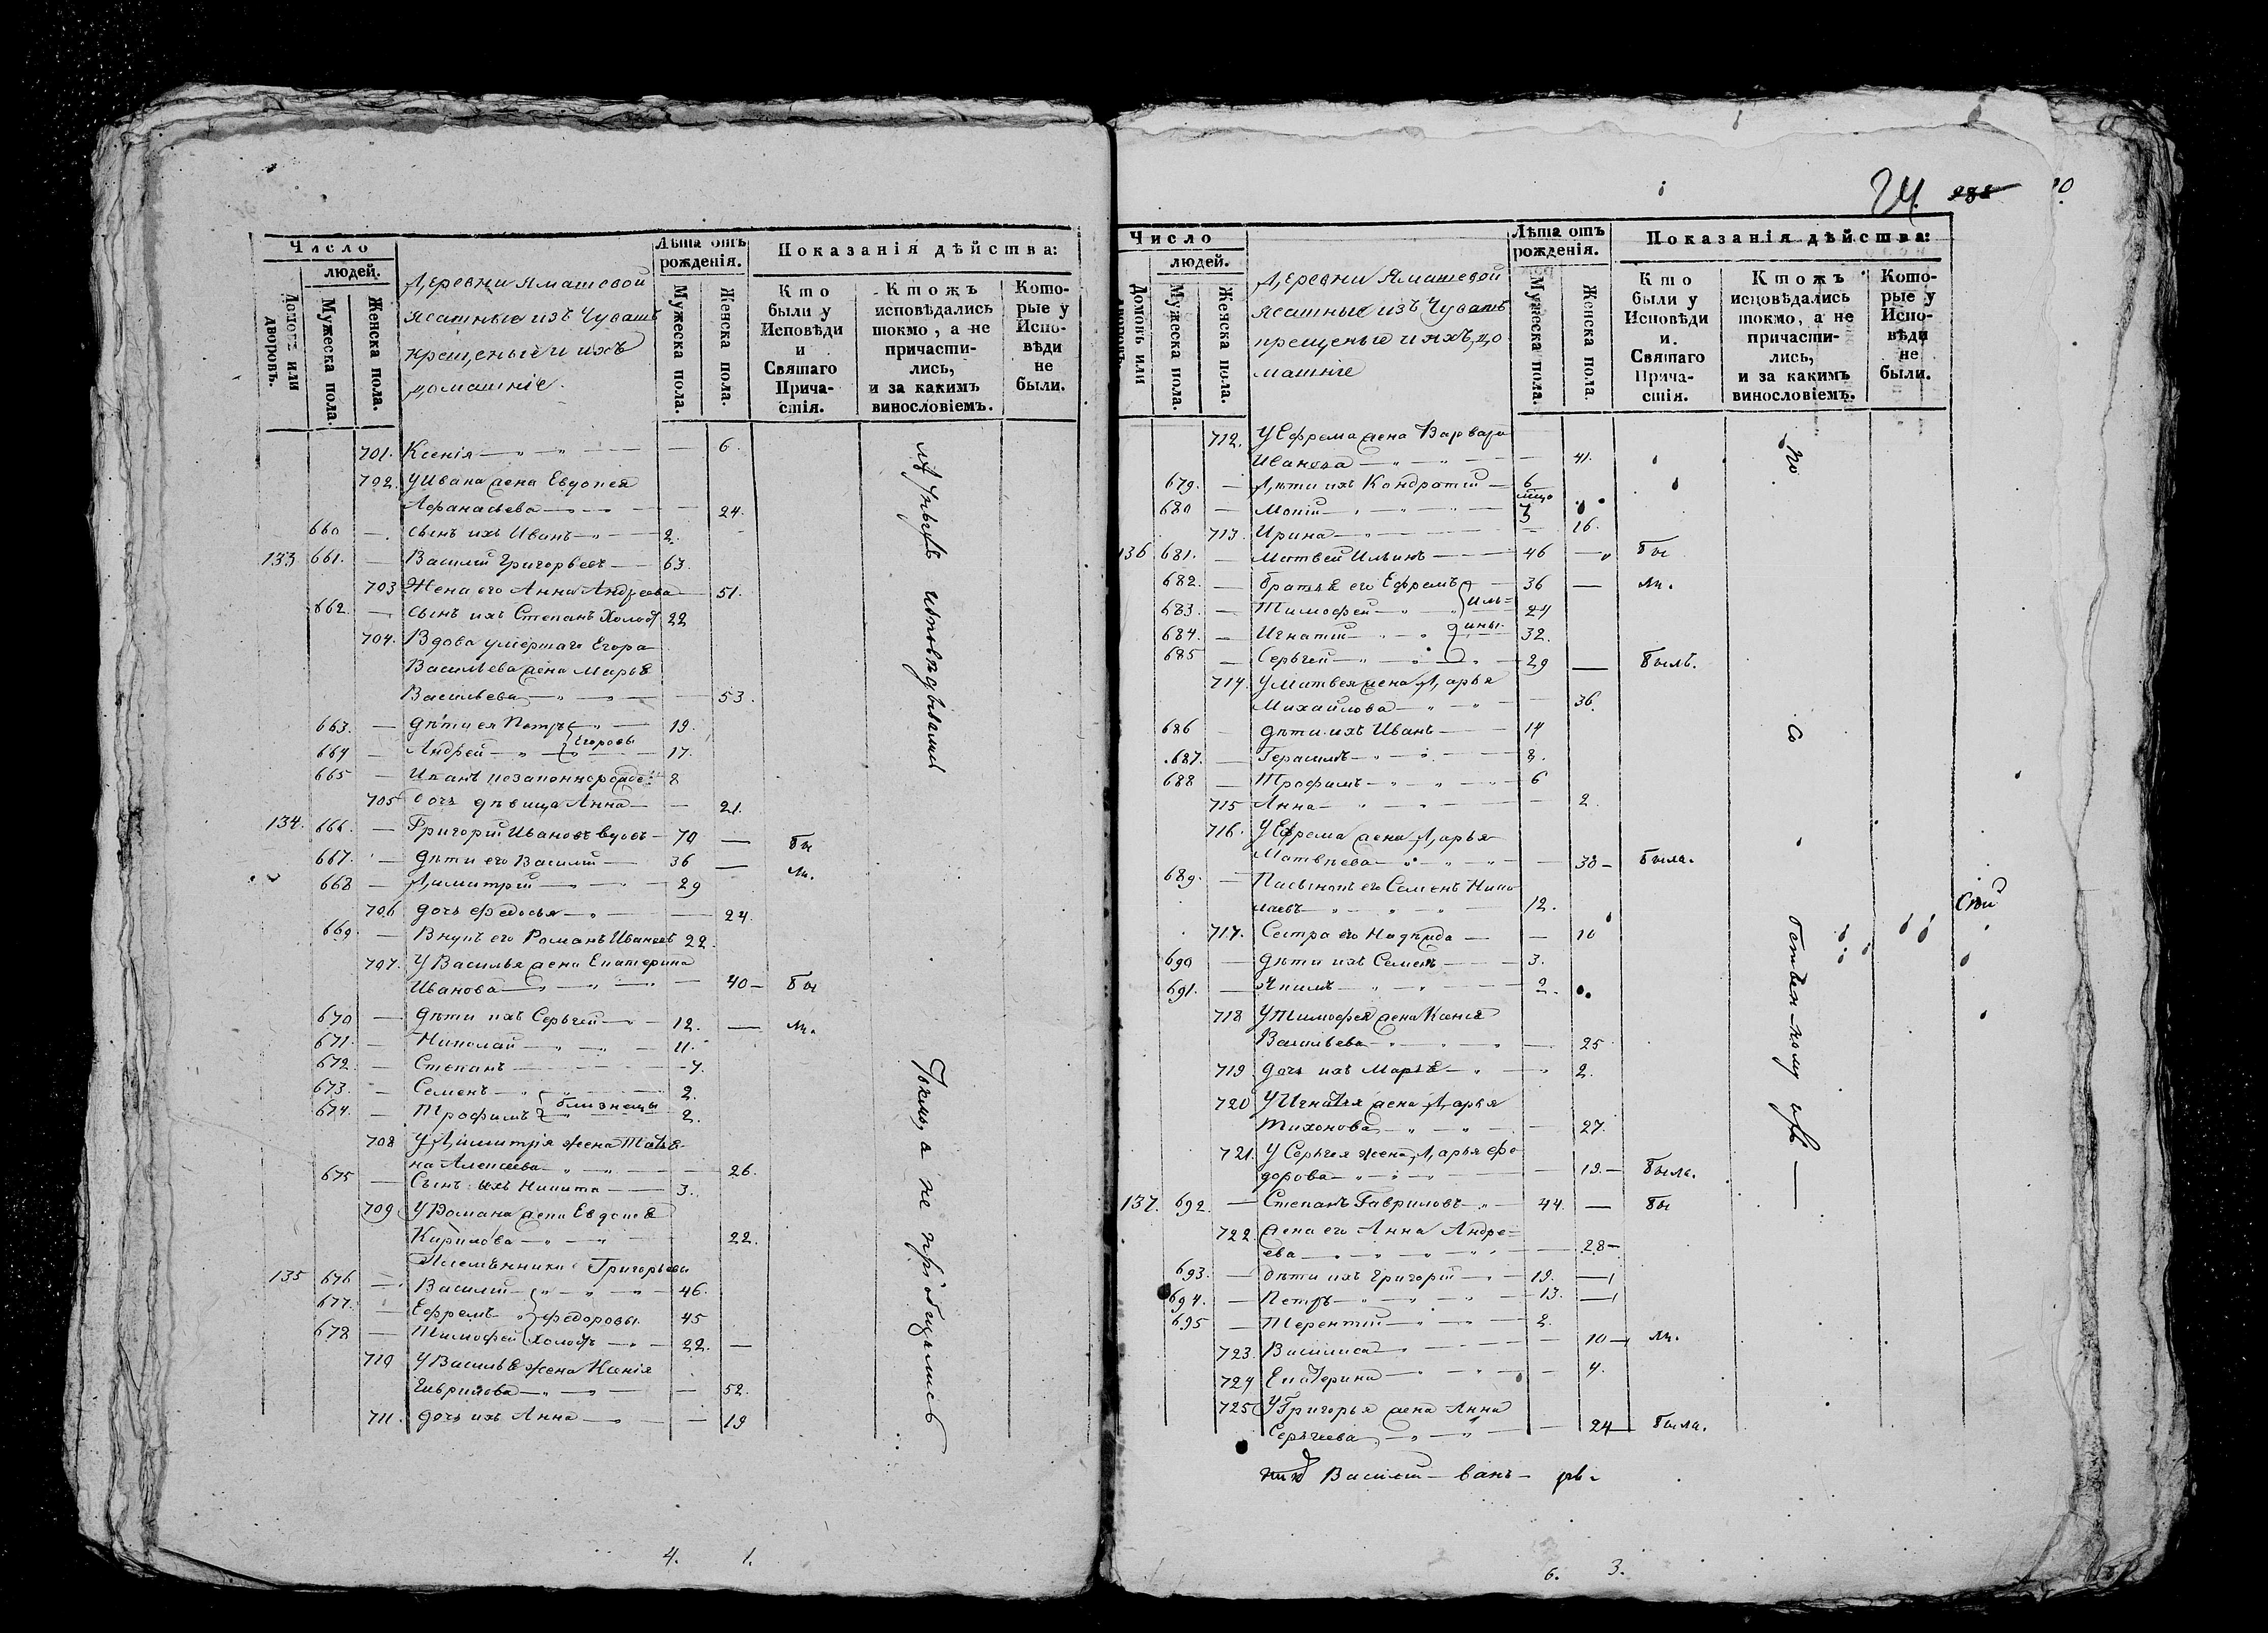 Число
людей.
Домовъ или дворовъ.
Мужеска пола.
Женска пола.
Деревни Ямашевой
ясашные изъ Чувашъ
крещеные и ихъ
домашніе.
Лѣта отъ рожденія.
Мужеска пола.
Женска пола.
Показанія дѣйства:
Кто были у Исповѣди и Святаго Прича-стія.
Ктожъ исповѣдались токмо, а не причасти-лись, и за какимъ винословіемъ.
Кото-рые у Испо-вѣди не были.
701. Ксенія — 6.
702. У Ивана жена Евдокея
Афанасьева — 24.
660 — сынъ ихъ Иванъ — 2.
133 661. — Василій Григорьевъ — 63.
703 Жена его Анна Андреева 51.
662. — сынъ ихъ Степанъ Холос 22
704. Вдова умершаго Егора
Васильева жена Марья
Васильева — 53.
663. — дѣти ея Петръ — 19.
Егоровы
664 — Андрей — 17.
665 — Иванъ незаконнорожде: 8
705 дочь дѣвица Анна — 21.
134. 666. — Григорій Ивановъ вдовъ — 70 — бы
667. — дѣти его Василій — 36 —
ли.
668 — Димитрій — 29
706 дочь Федосья — 24.
669. — Внукъ его Романъ Ивановъ 22.
707. У Василья жена Екатерина
Иванова — 40 — бы
670 — дѣти ихъ Сергѣй — 12. — ли.
671. — Николай — 11.
672. — Степанъ — 7.
673. — Семенъ — 2.
близнецы
674. — Трофимъ 2.
708 У Димитрія жена Татья-
на Алексеева — 26.
675 — Сынъ ихъ Никита — 3.
709 У Романа жена Евдокія
Кирилова — 22.
Племянники Григорьева
135 676 — Василій — 46.
677. — Ефремъ Федоровы 45
678 — Тимофей холостъ — 22. —
710 У Василья жена Ксенія
Гаврилова — 52.
711. дочь ихъ Анна — 19
исповѣдывались
токмо, а не пріобщались
4. 1.
24. 288
Число
людей.
Домовъ или дворовъ.
Мужеска пола.
Женска пола.
Деревни Ямашевой
ясашные изъ Чувашъ
крещеные и ихъ до
машніе
Лѣта отъ рожденія.
Мужеска пола.
Женска пола
Показанія дѣйства:
Кто были у Исповѣди и. Святаго Прича-стія.
Ктожъ исповѣдались токмо, а не причасти-лись, и за какимъ винословіемъ.
Кото-рые у Испо-вѣди не были.
712. У Ефрема жена Варвара
Иванова — 41.
679. — Дѣти ихъ Кондратій — 6
680 — 3
713. Ирина — 16.
136 681. — Матвей Ильинъ — 46 — бы
682. — братья его Ефремъ 36 — ли.
Иль=
683. — Тимофей — 24
ины.
684. — Игнатій — 32.
685 — Сергѣй — 29 — былъ.
714. У Матвея жена Дарья
Михайлова — 36.
686 — дѣти ихъ Иванъ — 14
687. — Герасимъ — 8.
688 — Трофимъ — 6
715 Анна — 2.
716. У Ефрема жена Дарья
Матвѣева — 38 — была.
689. — Пасынокъ его Семенъ Нико
лаевъ — 12.
717. Сестра его Надежда — 10
690 — дѣти ихъ Семенъ — 3.
691. — Якимъ — 2.
718 У Тимофея жена Ксенія
Васильева — 25
719 дочь ихъ Марья — 2.
720 У Игнатья жена Дарья
Тихонова — 27.
721. У Сергѣя жена Дарья Фе
дорова — 19. — была.
137. 692. — Степанъ Гавриловъ — 44. — бы
722. жена его Анна Андре=
ева — 28 —
693. — дѣти ихъ Григорій — 19. —
694. — Петръ — 13. —
695 — Терентій — 2.
723. Василиса — 10 — ли.
724 Екатерина — 4.
725 У Григорья жена Анна
Сергѣева — 24 — была.
по
со
6. 3.